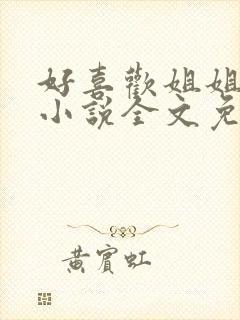 好喜歡姐姐
小說全文免
黃賓虹